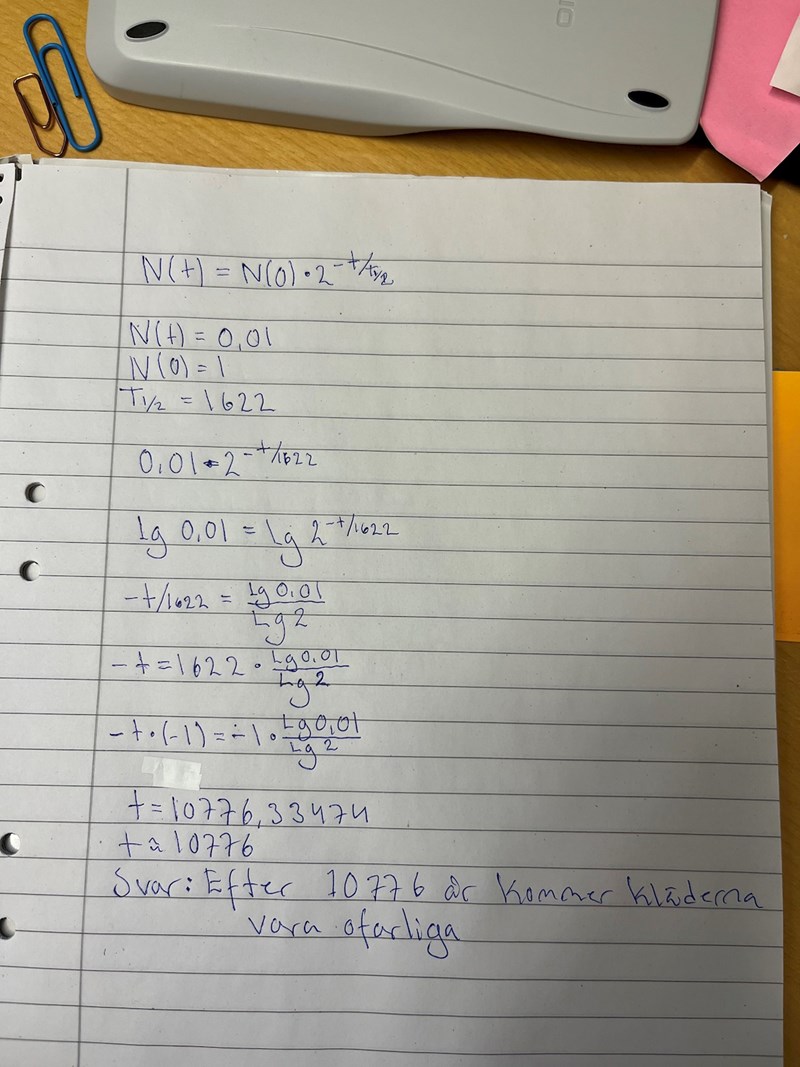 OI
N(t) = N(0) · 2^-t/T1/2
N(t) = 0,01
N(0) = 1
T1/2 = 1622
0,01 = 2^-t/1622
Lg 0,01 = Lg 2^-t/1622
-t/1622 = Lg 0,01 / Lg 2
-t = 1622 · Lg 0,01 / Lg 2
-t · (-1) = -1 · Lg 0,01 / Lg 2
t = 10776,33474
t ≈ 10776
Svar: Efter 10776 år kommer kläderna
vara ofarliga